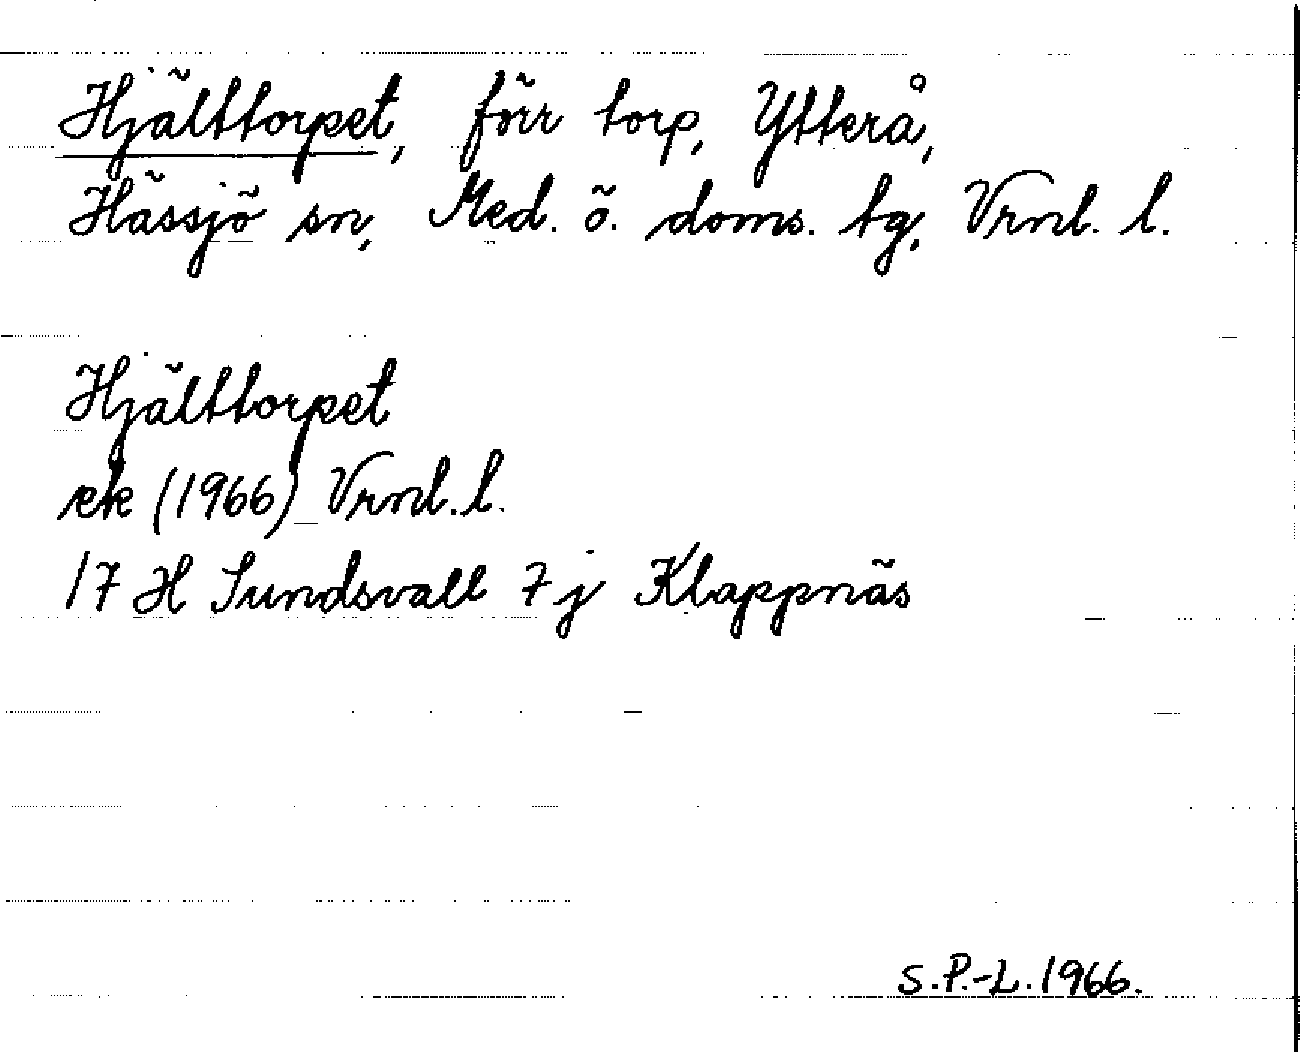 Hjälttorpet, förr torp, Ytterå,
Hässjö sn, Med. ö. doms. tg, Vrnl. l.
Hjälttorpet
ek (1966) Vrnl. l.
17 H Sundsvall 7 j Klappnäs
S.P.-L. 1966.